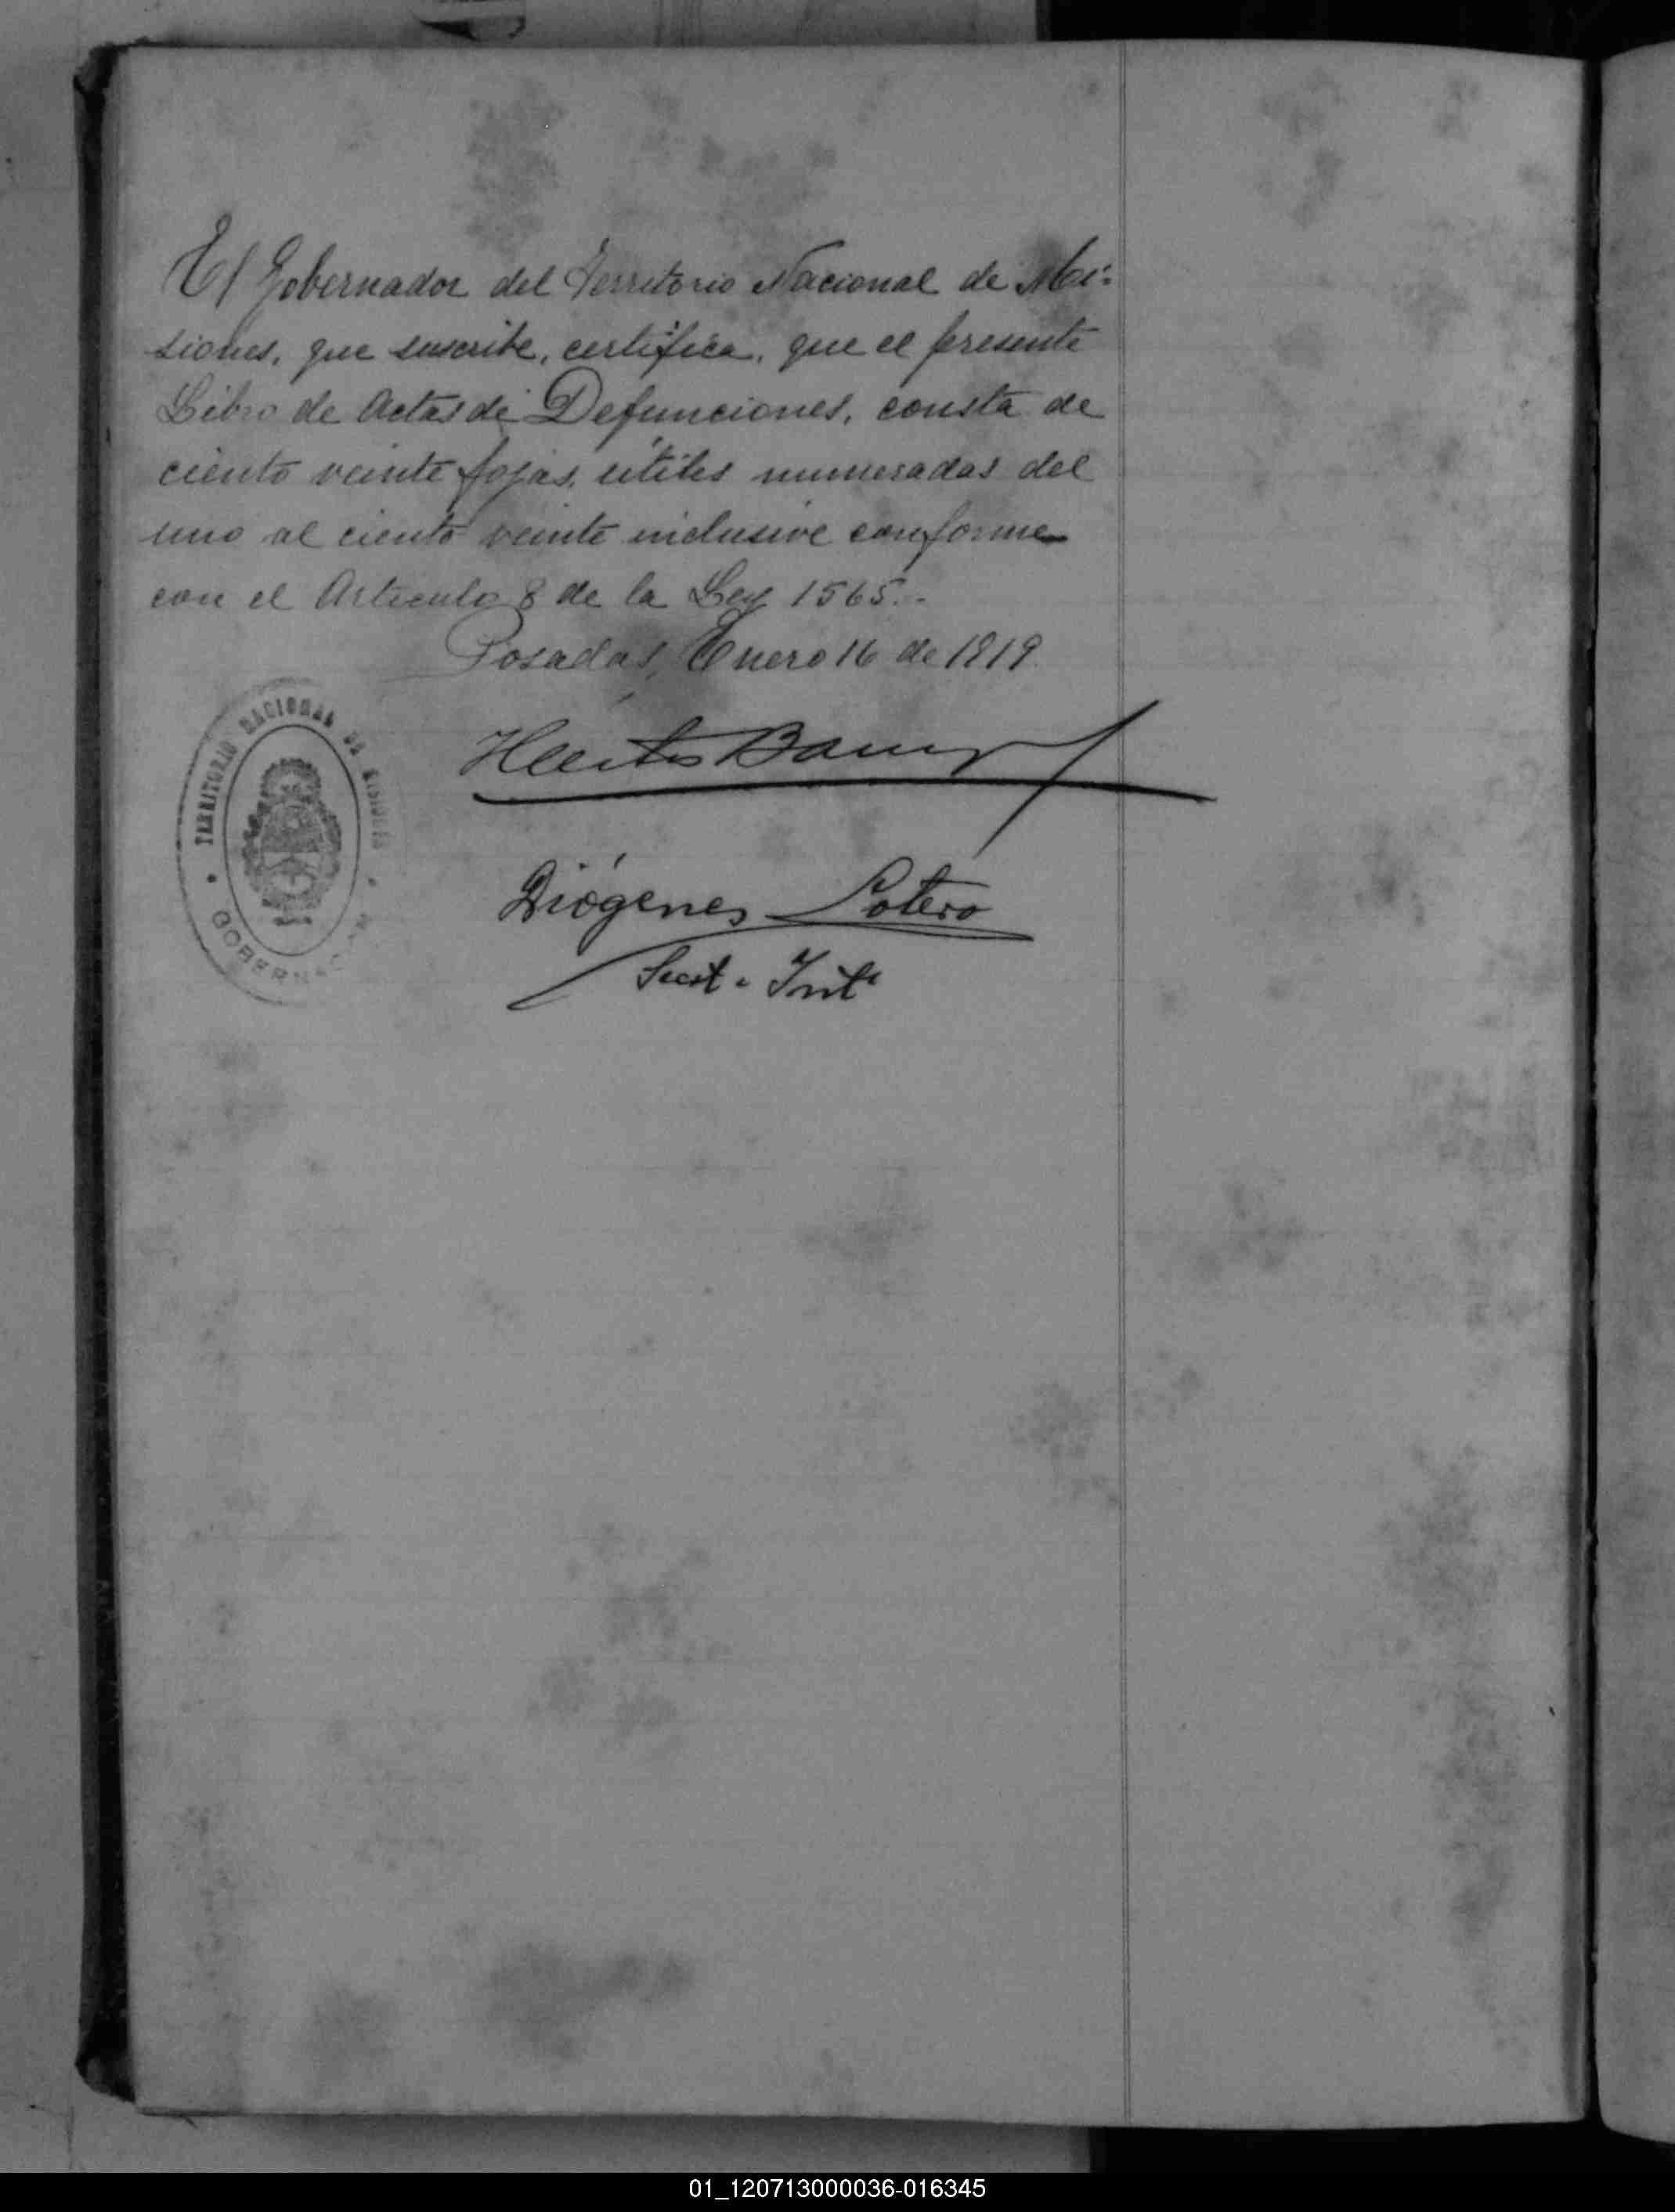 El Gobernador del Territorio Nacional de Mi-
siones, que suscribe, certifica, que el presente
Libro de Actas de Defunciones, consta de
ciento veinte fojas, útiles numeradas del
uno al ciento veinte inclusive conforme
con el Articulo 8 de la Ley 1565.-
Posadas, Enero 16 de 1919.
TERRITORIO NACIONAL DE MISIONES
GOBERNACION
Diógenes Sotero
Secret. Intº
01_120713000036-016345